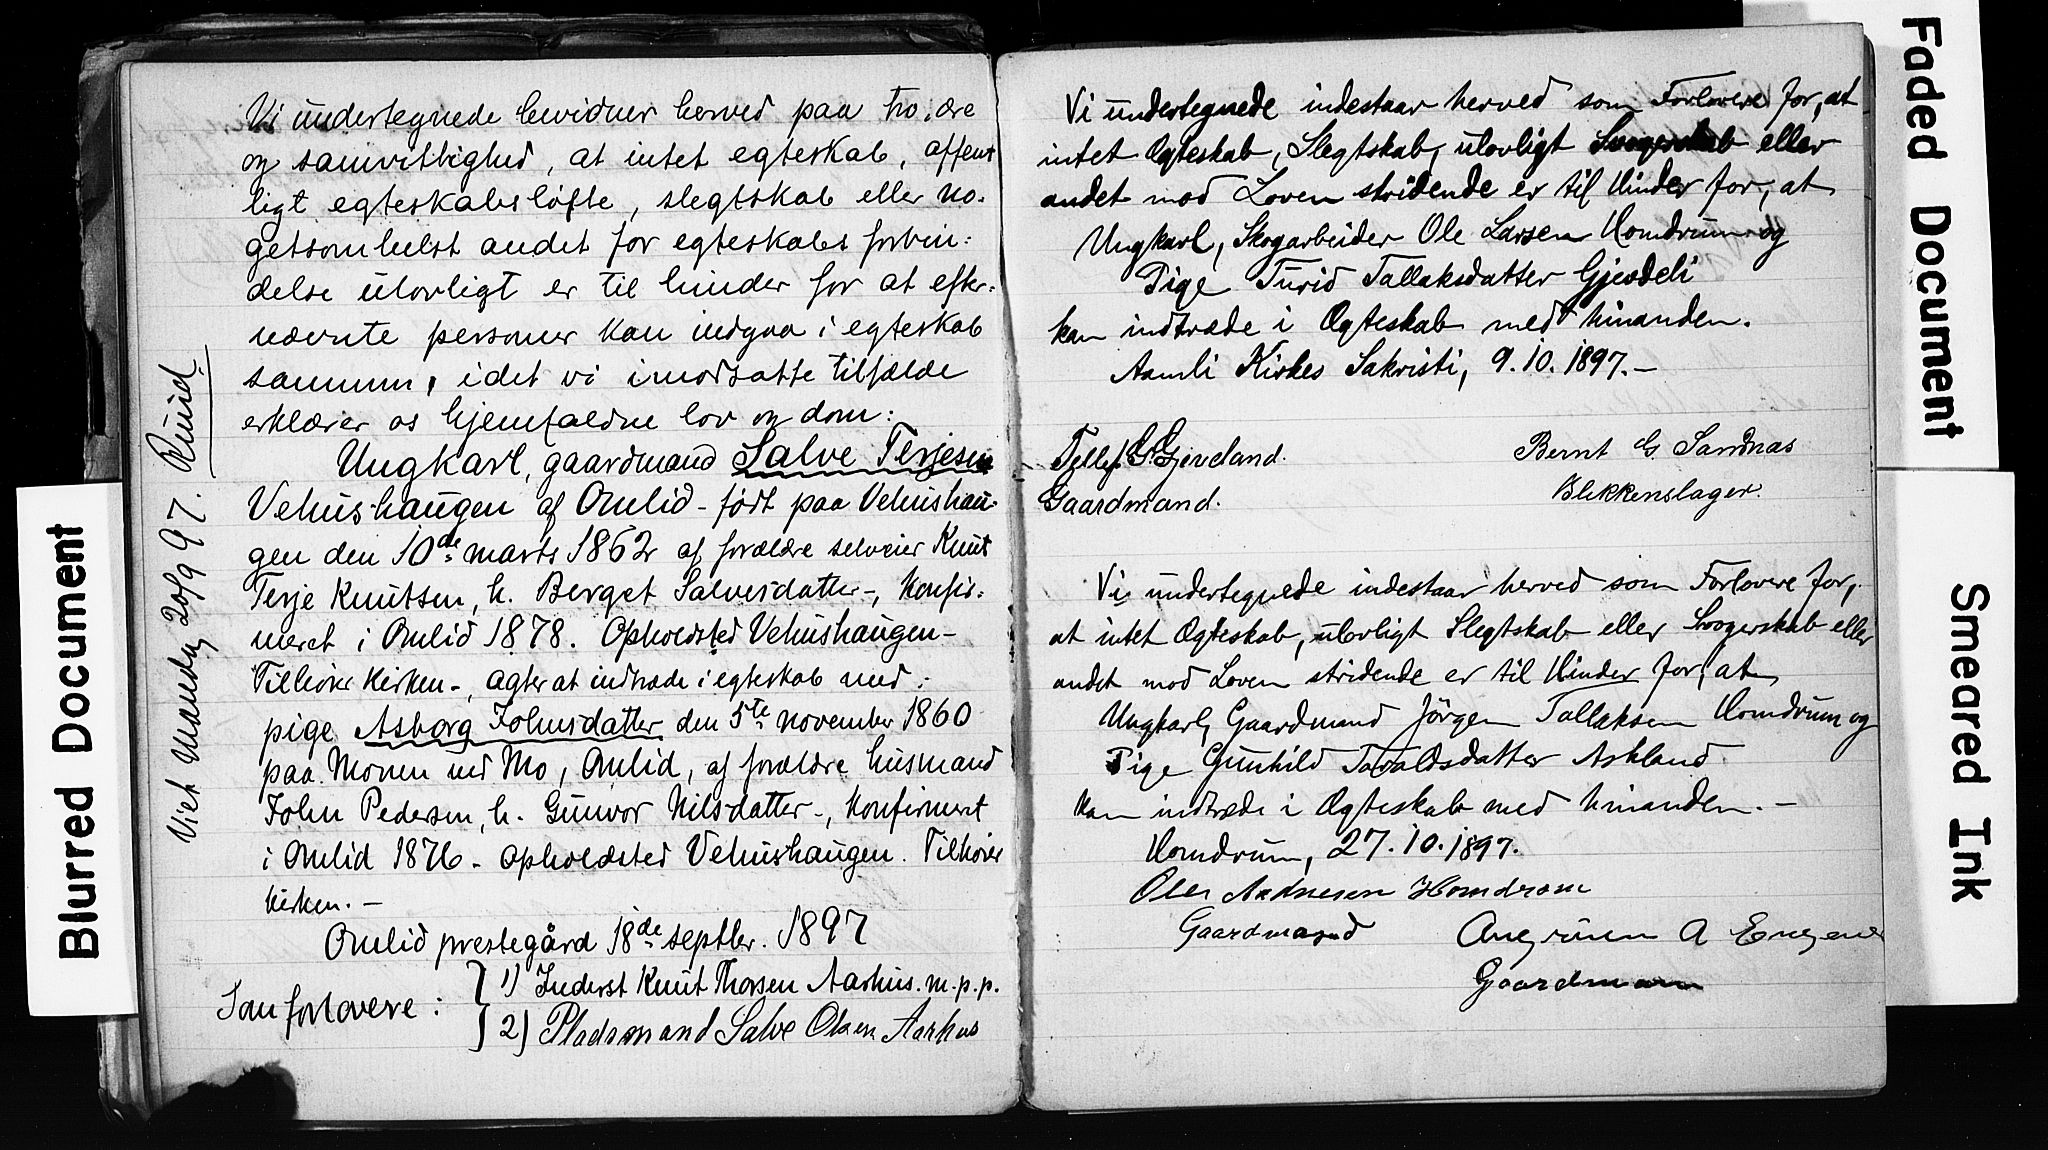 Vi undertegnede bevidner herved paa tro, ære
og samvittighed, at intet egteskab, offent
ligt egteskabsløfte, slegtskab eller no-
getsomhelst andet for egteskabs forbin:
delse ulovligt er til hinder for at efter:
nævnte personer kan indgaa i egteskab
sammen, idet vi i modsatte tilfælde
erklærer os hjemfaldne lov og dom:
Ungkarl, gaardmand Salve Terjesen
Vehushaugen af Omlid - født paa Vehushau-
gen den 10de marts 1862 af forældre selveier Knut
Terje Knutsen, h. Berget Salvesdatter -, Konfir:
meret i Omlid 1878. Opholdsted Vehushaugen -
Tilhører Kirken -, agter at indtræde i egteskab med:
pige Asborg Johnsdatter den 5te november 1860
paa Monen ved Mo, Omlid, af forældre husmand
John Pedersen, h. Gunvor Nilsdatter -, Konfirmert
i Omlid 1876 - Opholdsted Vehushaugen. Tilhører
kirken. -
Omlid prestegård 18de septbr. 1897
Som forlovere:
1) Inderst Knut Thorsen Aarhus. m.p.p.
2) Pladsmand Salve Olsen Aarhus
Viet Mandag 20/9 97.
Vi undertegnede indestaar herved som Forlovere for, at
intet Ægteskab, Slegtskab, ulovligt Svogerskab eller
andet mod Loven stridende er til Hinder for, at
Ungkarl, Skogarbeider Ole Larsen Homdrum og
Pige Turid Tallaksdatter Gjevdeli
kan indtræde i Ægteskab med hinanden.
Aamli Kirkes Sakristi, 9.10.1897. -
Tellef G. Gjeveland.
Gaardmand.
Bernt G. Sandnas
Blikkenslager.
Vi undertegnede indestaar herved som Forlovere for,
at intet Ægteskab, ulovligt Slegtskab eller Svogerskab eller
andet mod Loven stridende er til Hinder for, at
Ungkarl, Gaardmand Jørgen Tallaksen Homdrum og
Pige Gunhild Tovaldsdatter Askland
kan indtræde i Ægteskab med hinanden. -
Homdrum, 27.10.1897.
Oles Aadnesen Homdrom
Gaardmand
A Engene
Gaardmann
Blurred Document
Faded Document
Smeared Ink